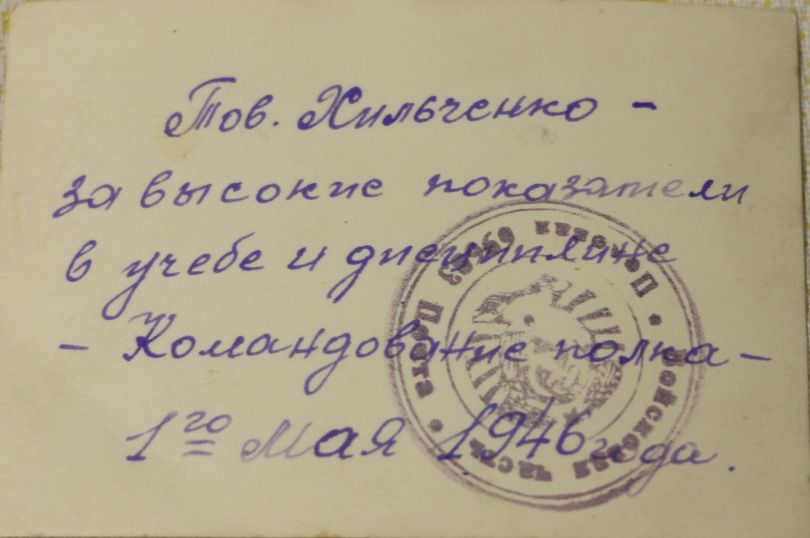 Тов. Хильченко -
за высокие показатели
в учебе и дисциплине
- Командование полка -
1го Мая 1946 года.
Войсковая часть • Полевая Почта